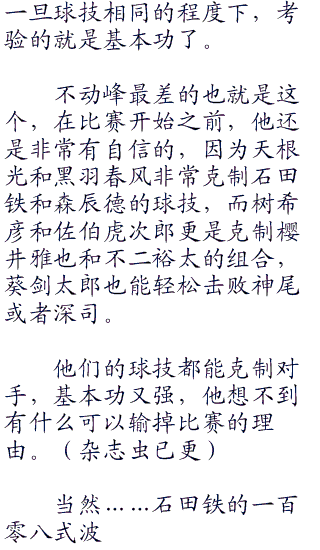 一旦球技相同的程度下，考
验的就是基本功了。
不动峰最差的也就是这
个，在比赛开始之前，他还
是非常有自信的，因为天根
光和黑羽春风非常克制石田
铁和森辰德的球技，而树希
彦和佐伯虎次郎更是克制樱
井雅也和不二裕太的组合，
葵剑太郎也能轻松击败神尾
或者深司。
他们的球技都能克制对
手，基本功又强，他想不到
有什么可以输掉比赛的理
由。（杂志虫已更）
当然……石田铁的一百
零八式波